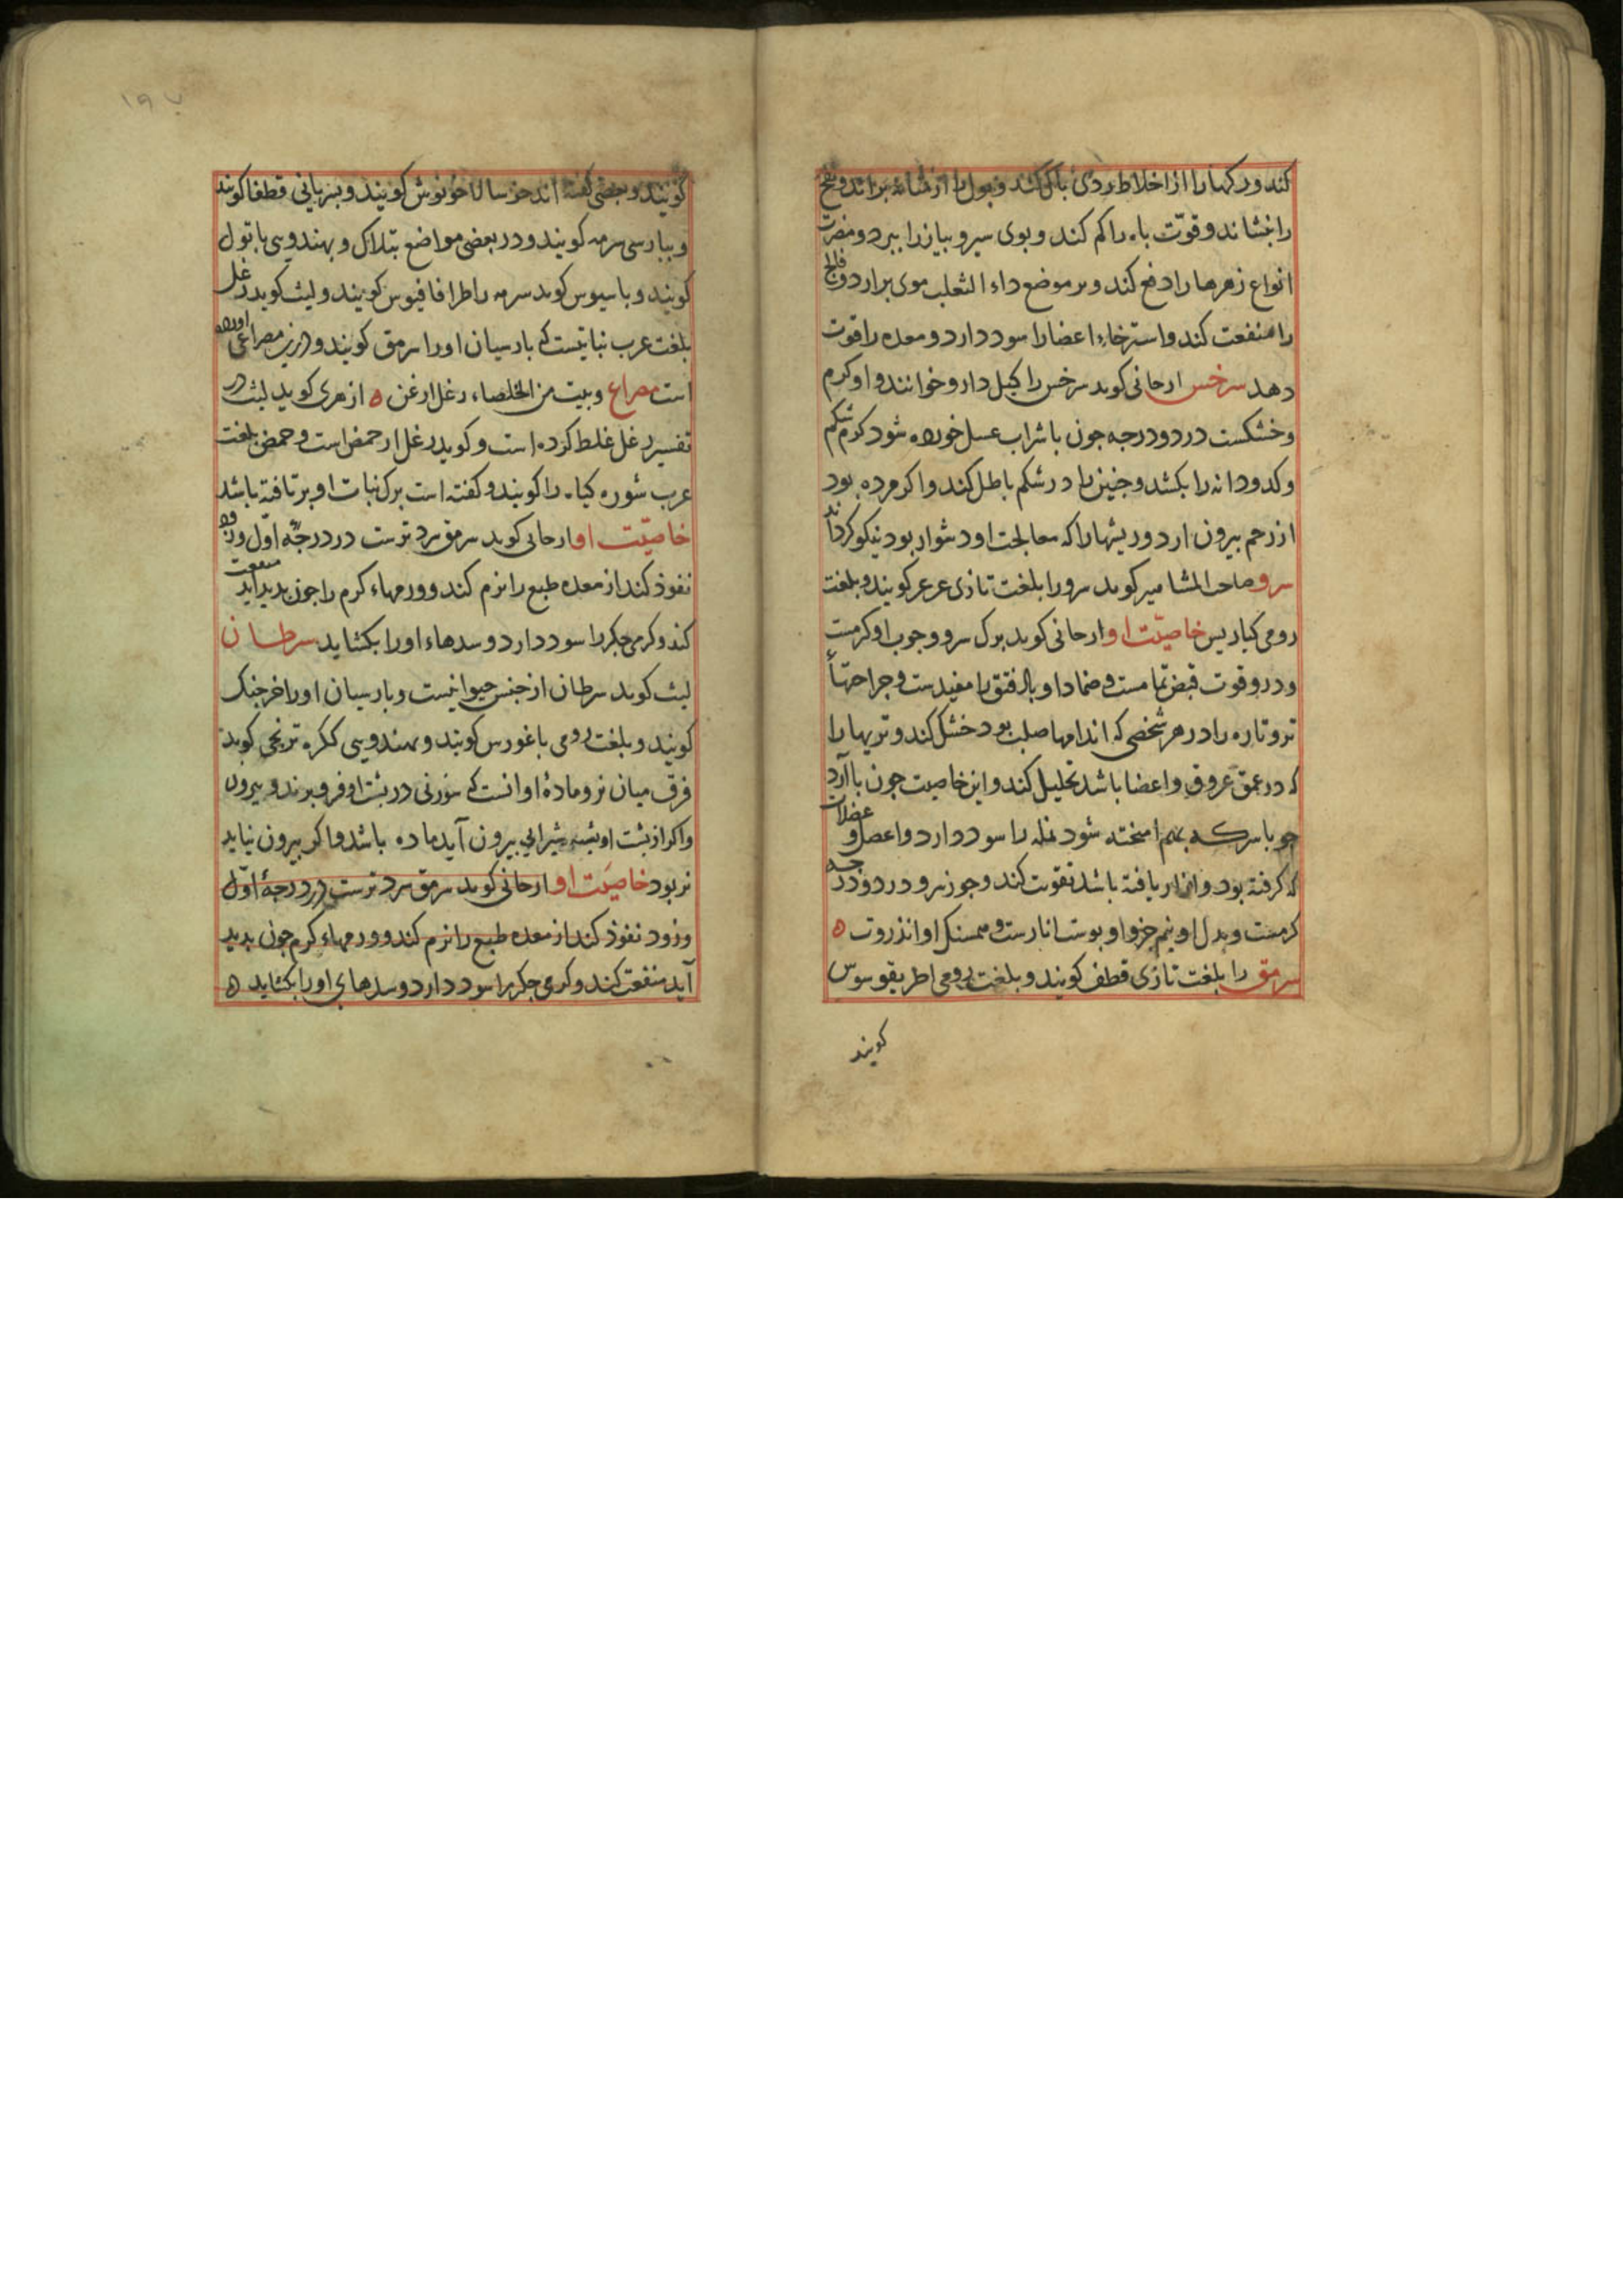 کند ورکها را از اخلاط ردی پاک کند و بول را از مثانه براند و نفخ
را بنشاند و قوّت باه را کم کند و بوی سیر و بیاز را ببرد و مضرت
انواع زهرها را دفع کند و بر موضع داء الثعلب موی برارد و فالج
را منفعت کند و استرخاء اعضا را سود دارد و معده را قوت
دهد سرخس ارجانی کوید سرخس را کیل دارو خوانند و او کرم
و خشکست در دو درجه جون با شراب عسل خورده شود کرم شکم
و کدودانه را بکشد و جنین را در شکم باطل کند و اکر مرده بود
از رحم بیرون ارد و ریشها را که معالجت او دشوار بود نیکو کرداند
سرو صاحب المشاهیر کوید سرو را بلغت تازی عرعر کویند و بلغت
رومی کباریس خاصیّت او ارجانی کوید برک سرو و جوب او کرمست
و درو قوت قبض تمامست و ضماد او باد فتق را مفیدست و جراحتهاء
تر و تازه را در هر شخصی که اندامها صلب بود خشک کند و تریها را
که در عمق عروق و اعضا باشد تحلیل کند و این خاصیت جون با آرد
جو با سرکه بهم امیخته شود نمله را سود دارد و اعصاب و عضلات
که کرفته بود و باشد تقویت کند و جوز سرو در دو درجه
کرمست و بدل او نیم جزو او بوست انارست و همسنک او انذروت ه
سرمق را بلغت تازی قطف کویند و بلغت رومی اطریقوسوس
کویند
۱۹۷
کویند و بعضی کفته اند خوسالاخونوش کویند و بسریانی قطفا کویند
و ببارسی سرمه کویند و در بعضی مواضع بتلاک و بهندوی باتول
کویند و باسیوس کوید سرمه را طرافافیوس کویند و لیث کوید رغل
بلغت عرب نباتیست که بارسیان اورا سرمق کویند و درین مصراع اورده
است مصراع وبیت من الخلصاء رغل ارغن ه ازهری کوید لیث در
تفسیر رغل غلط کرده است و کوید رغل از حمض است و حمض بلغت
عرب شوره کیاه را کویند و کفته است برک نبات او برتافته باشد
خاصیّت او ارجانی کوید سرمق سرد ترست در درجهٔ اوّل و زود
نفوذ کند از معده طبع را نرم کند و ورمهاء کرم را جون بدید آید منفعت
کند و کرمی جکر را سود دارد و سدهاء اورا بکشاید سرطان
لیث کوید سرطان از جنس حیوانیست و بارسیان اورا خرجنک
کویند و بلغت رومی باغورس کویند و بهندوی ککره ترنجی کویند
فرق میان نر و مادهٔ او انست که سوزنی در بشت او فرو برند و بیرون
و اکر از بشت او بشبه شیرابی بیرون آید ماده باشد و اکر بیرون نیاید
نر بود خاصیّت او ارجانی کوید سرمق سرد ترست در درجهٔ اوّل
و زود نفوذ کند از معده طبع را نرم کند و ورمهاء کرم جون بدید
آید منفعت کند و کرمی جکر را سود دارد و سدهای اورا بکشاید ه